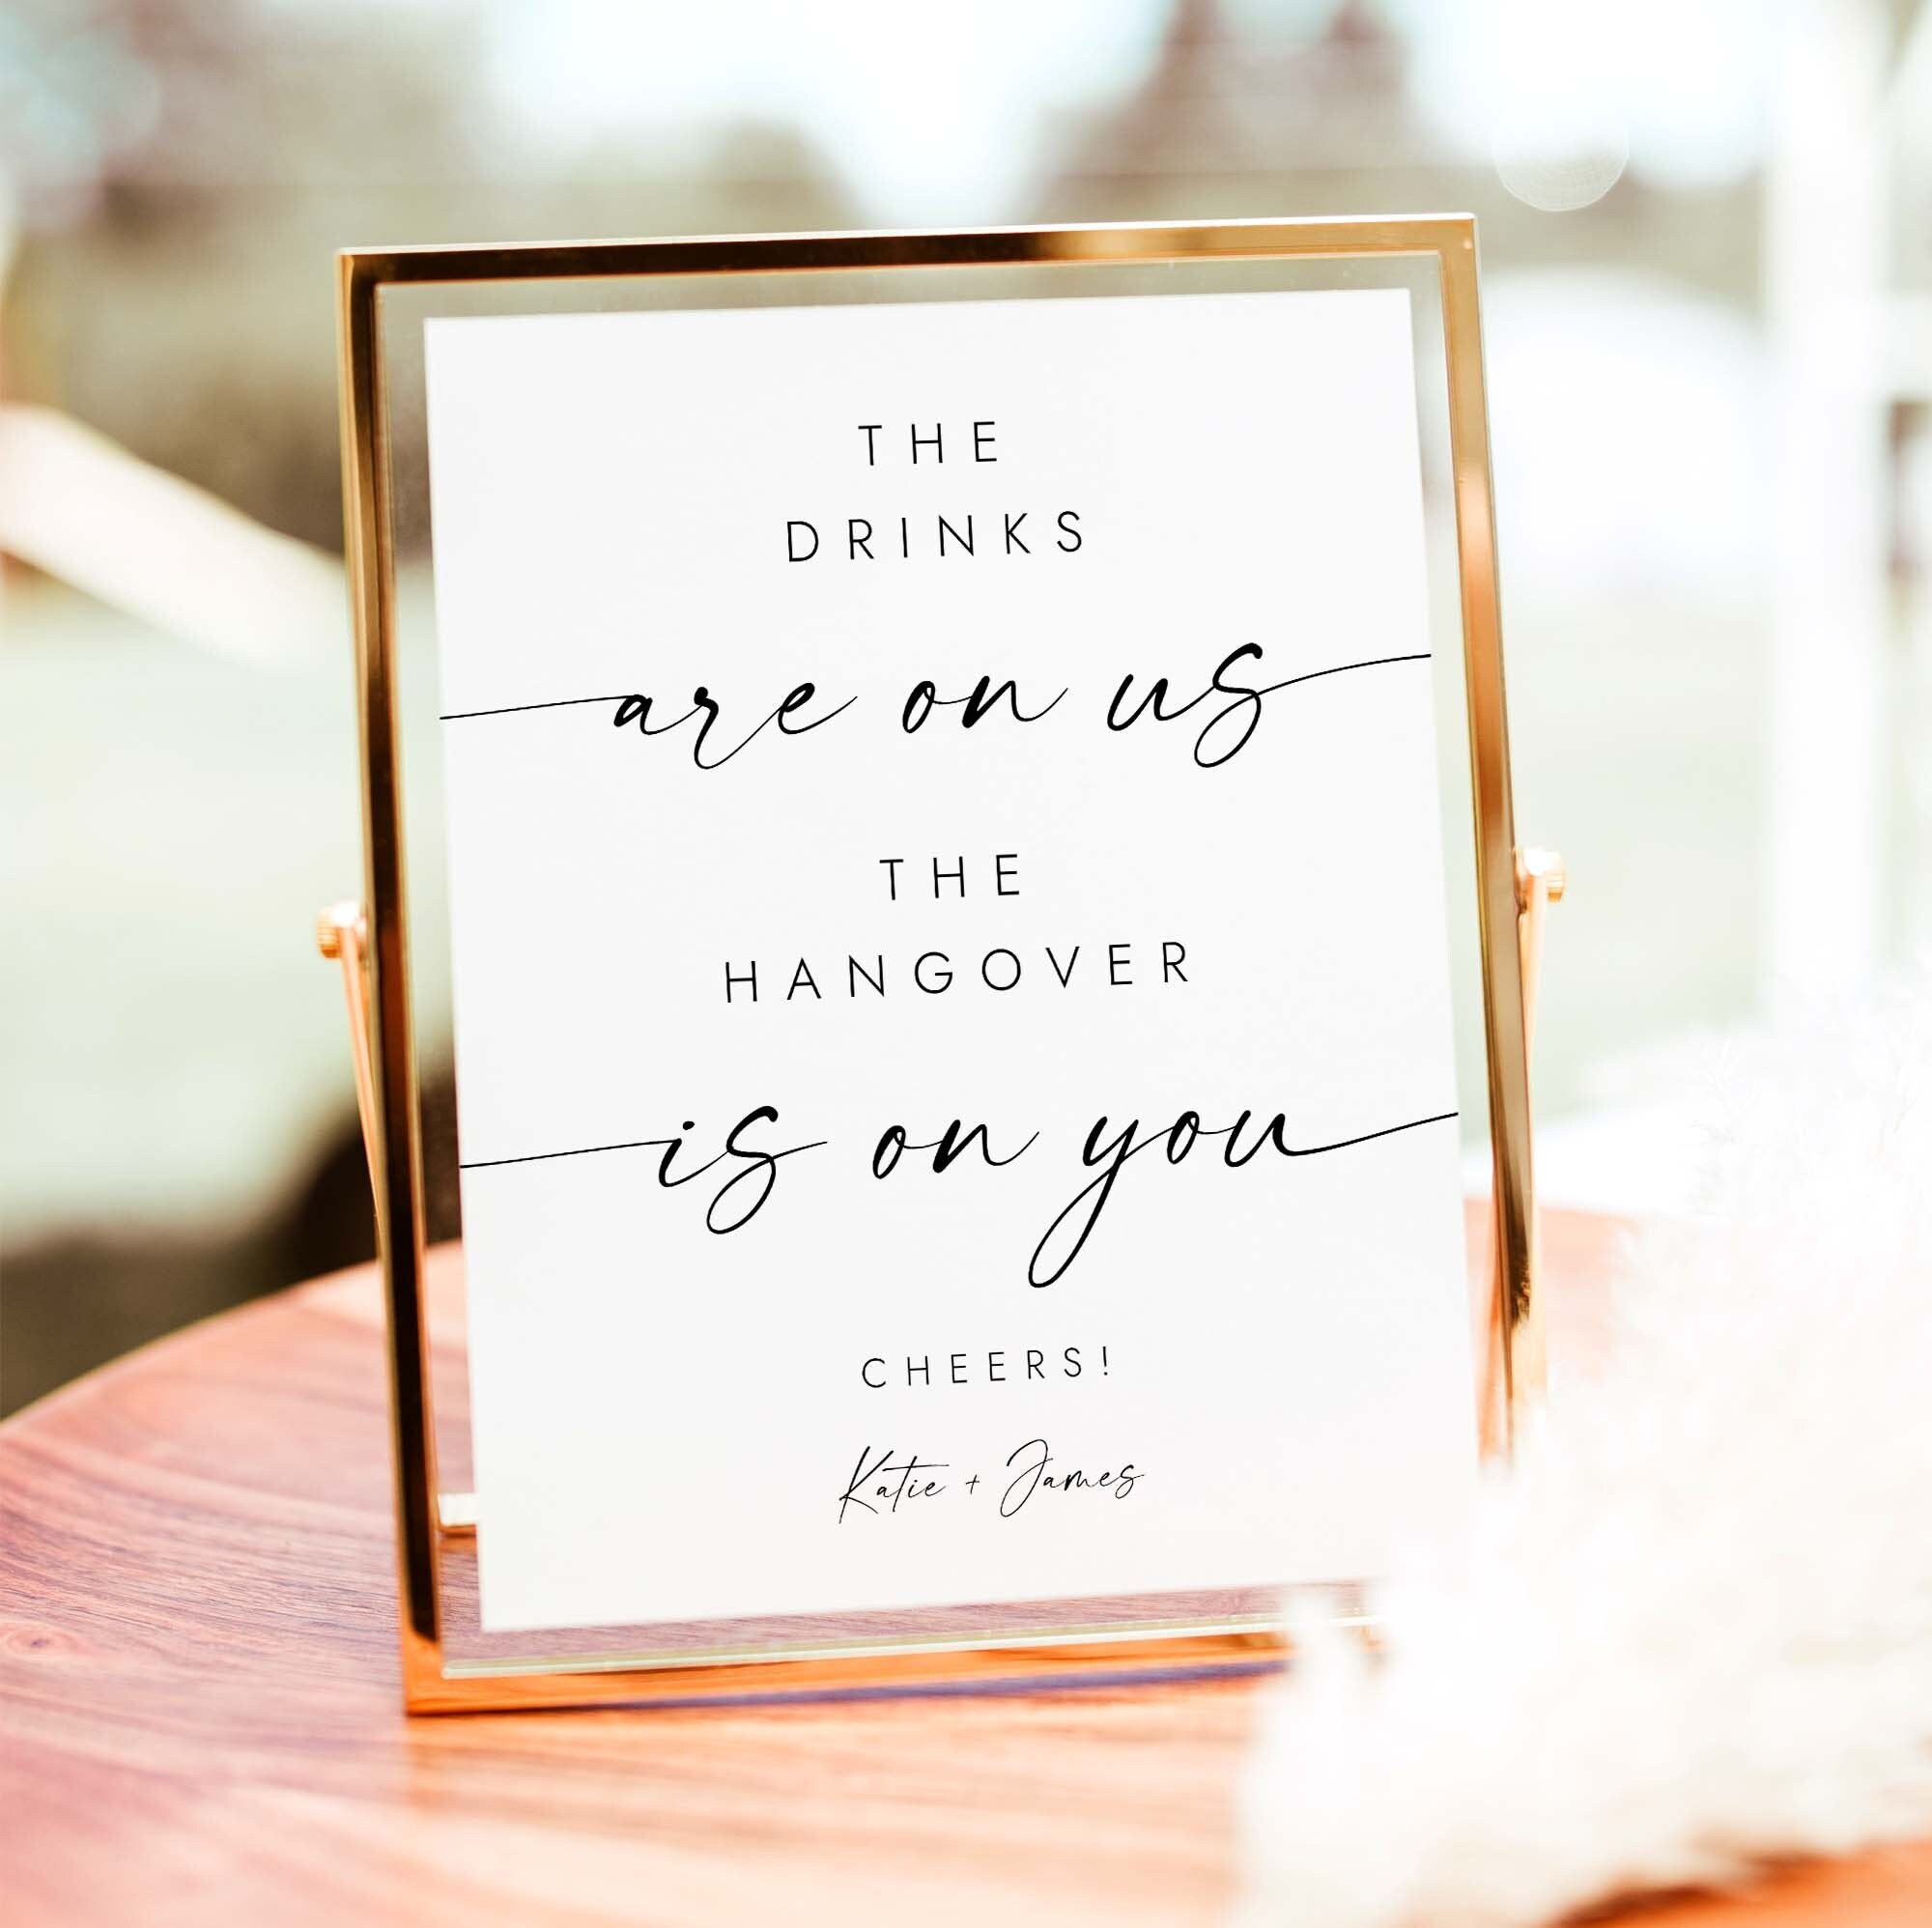 THE
DRINKS
are on us
THE
HANGOVER
is on you
CHEERS!
Katie + James